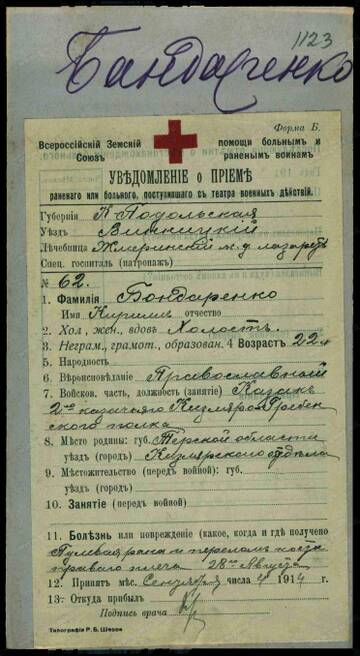 1123
Бандаренко
Форма Б.
Всероссійскій Земскій Союзъ
помощи больнымъ и раненымъ воинамъ
УВѢДОМЛЕНІЕ о ПРІЕМѢ
раненаго или больного, поступившаго съ театра военныхъ дѣйствій.
Губернія Подольская
Уѣздъ Винницкій
Лѣчебница Жмеринскій ж. д. лазаретъ
Спец. госпиталь (патронажъ)
№ 62.
1. Фамилія Бондаренко
Имя Кирилъ отчество
2. Хол., жен., вдовъ Холостъ.
3. Неграм., грамот., образован. 4 Возрастъ 22
5. Народность
6. Вѣроисповѣданіе Православный
7. Войсков. часть, должность (занятіе) Казакъ
2го казачьяго Кизляро-Гребен
ского полка
8. Мѣсто родины: губ. Терской области
уѣздъ (городъ) Кизлярскаго отдѣла
9. Мѣстожительство (передъ войной): губ.
уѣздъ (городъ)
10. Занятіе (передъ войной)
11. Болѣзнь или поврежденіе (какое, когда и гдѣ получено
Пулевая рана и переломъ кости
праваго плеча 28го Августа
12. Принятъ мѣс. Сентября числа 4 1914 г.
13. Откуда прибылъ
Подпись врача
Типографія Р. Б. Шерръ